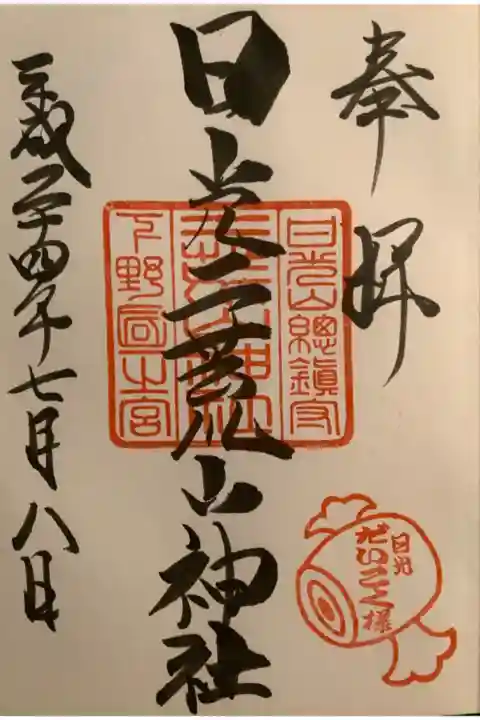 奉拝
日光二荒山神社
平成二十四年七月八日
日光山總鎮守
二荒山神社
下野国一之宮
日光
だいこく様